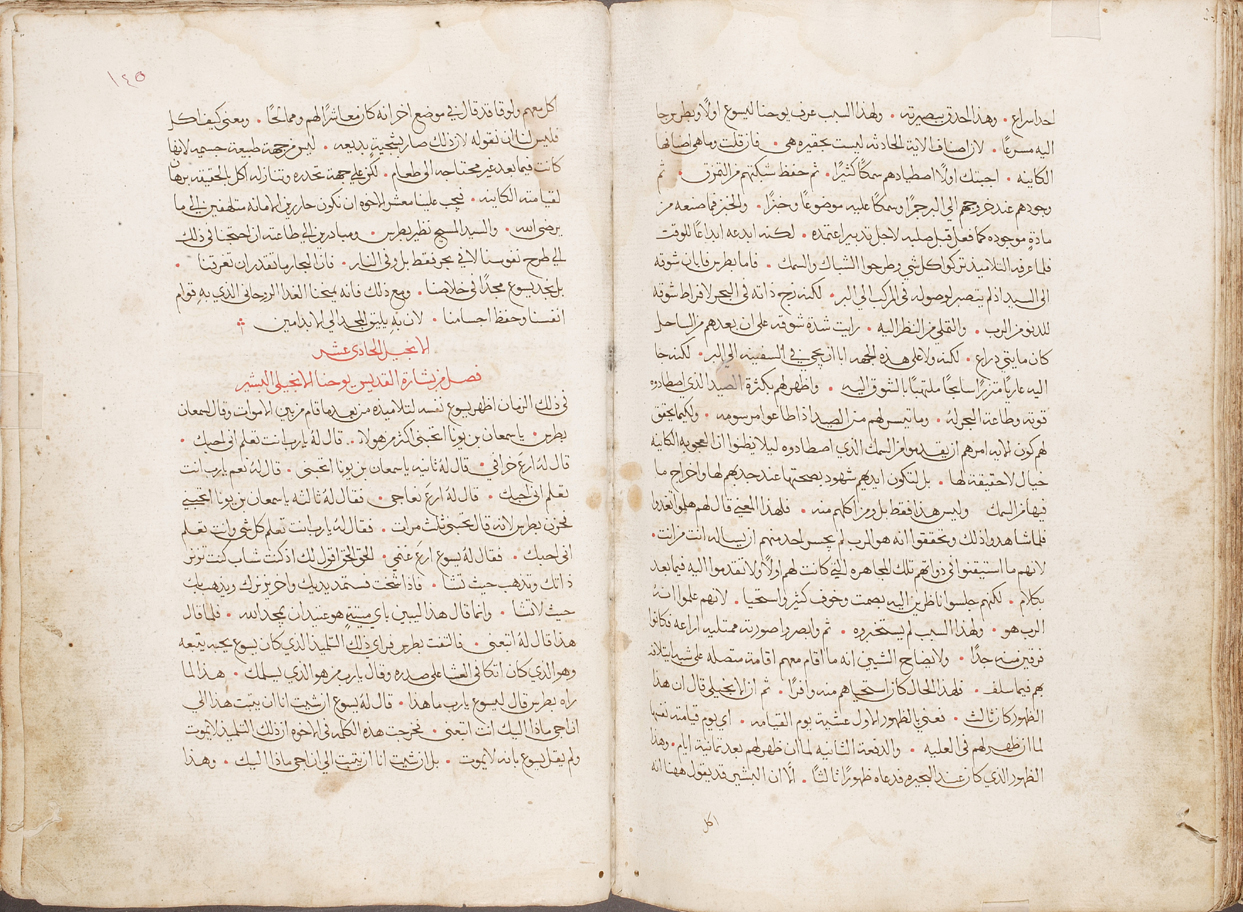 احد اسراع • وهذا احدق بصيرته • ولهذا السبب عرف يوحنا ليسوع اولًا وبطرس جا
اليه مسرعًا • لان اصناف الاية الحادثه ليست بحقيره هي • فان قلت وما هي اصنافها
الكاينه • اجبتك اولًا اصطيادهم سمكًا كثيرًا • ثم حفظ شبكتهم من التمزق • ثم
وجودهم عند خروجهم الى البر جمرًا وسمكًا عليه موضوعًا وخبزًا • والخبز فما صنعه من
مادةٍ موجوده كما فعل قبل صلبه لاجل تدبير اعتمده • لكنه ابدعه ابداعًا للوقت
فلما عرفه التلاميذ تركوا كل شي وطرحوا الشباك والسمك • فاما بطرس فابان شوقه
الى السيد اذ لم يتصبر لوصوله في المركب الى البر • لكنه زج ذاته في البحر لافراط شوقه
للدنو من الرب • والتملي من النظر اليه • رايت شدة شوقه على ان بعدهم من الساحل
كان مايتي دراع • لكنه ولا على هذه الجهه ابا ان يجي في السفينه الى البر • لكنه جا
اليه عاريًا متزرًا سابحًا ملتهبًا بالشوق اليه • واظهر لهم بكثرة الصيد الذي اصطادوه
قوته وطاعة البحر له • وما تيسر لهم من الصيد اذ اطاعوا مرسومه • ولكيما يحقق
لهم كون الايه امرهم ان يقدموا من السمك الذي اصطادوه ليلا يظنوا ان العجوبه الكاينه
خيال لا حقيقة لها • بل لتكون ايديهم شهود بصحتها عند جذبهم لها واخراج ما
فيها من السمك • وليس هذا فقط بل ومن اكلهم منه • فلهذا المعنى قال لهم هلموا تغدوا
فلما شاهدوا ذلك وتحققوا انه هو الرب لم يجسر احد منهم ان يساله انت من انت •
لانهم ما استيقنوا في ذواتهم تلك المجاهره التي كانت لهم اولًا ولا تقدموا اليه فيما بعد
بكلام • لكنهم جلسوا ناظرين اليه بصمت وخوف كثير واستحيا • لانهم علموا انه
الرب هو • ولهذا السبب لم يستخبروه • ثم وابصروا صورته ممتليه اراعه فكانوا
فرقين منه جدًا • ولايضاح الشيين انه ما اقام معهم اقامة متصله على شبه ايتلافه
بهم فيما سلف • فلهذا الحال كان استحياهم منه وافرًا • ثم ان الانجيلي قال ان هذا
الظهور كان ثالث • فعني بالظهور الاول عشية يوم القيامه • اي يوم قيامته نفسها
لما ان ظهر لهم في العليه • والدفعة الثانيه لما ان ظهر لهم بعد ثمانية ايام • وهذا
الظهور الذي كان عند البحيره فدعاه ظهورًا ثالثًا • الّا ان البشير قد يقول ههنا انه
اكل
١٤٥
اكل معهم ولوقا قد قال في موضع اخر انه كان معاشرًا لهم وممالحًا • ومعنى كيف اكل
فليس لنا ان نقوله لان ذلك صار بسجيةٍ بديعه • ليس من جهة طبيعة جسميه لانها
كانت فيما بعد غير محتاجه الى طعام • لكن على جهة تحدره وتنازله اكل بالحقيقه برهانًا
لقيامته الكاينه • فيجب علينا معشر الاخوه ان نكون حارين الامانه متلهفين الى ما
يرضى الله • والسيد المسيح نظير بطرس • ومبادرين الى طاعته ان احتجنا في ذلك
الى طرح نفوسنا لا في بحر فقط بل وفي النار • فان البحار ما تقدر ان تغرقنا •
بل نجد يسوع مجدًا في خلاصنا • ومع ذلك فانه يمنحنا الغدا الروحاني الذي به قوام
انفسنا وحفظ اجسامنا • لان به يليق المجد الى الابد امين •
الانجيل الحادي عشر
فصل من بشارة القديس يوحنا الانجيلي البشير
في ذلك الزمان اظهر يسوع نفسه لتلاميذه من بعد ما قام من بين الاموات وقال لسمعان
بطرس • يا سمعان بن يونا اتحبني اكثر من هولاء • قال له يا رب انت تعلم اني احبك •
قال له ارع خرافي • قال له ثانيه يا سمعان بن يونا اتحبني • قال له نعم يا رب انت
تعلم اني احبك • قال له ارع نعاجي • فقال له ثالثه يا سمعان بن يونا اتحبني
فحزن بطرس لانه قال اتحبني ثلث مرات • فقال له يا رب انت تعلم كل شي وانت تعلم
اني احبك • فقال له يسوع ارع غنمي • الحق الحق اقول لك اذ كنت شاب كنت تزنر
ذاتك وتذهب حيث تشا • فاذا شخت فستمد يديك واخر يزنرك ويذهب بك
حيث لا تشا • وانما قال هذا ليبين باي ميتةٍ هو عتيد ان يمجد الله • فلما قال
هذا قال له اتبعني • فالتفت بطرس فراى ذلك التلميذ الذي كان يسوع يحبه يتبعه
وهو الذي كان اتكا في العشا على صدره وقال يا رب من هو الذي يسلمك • هذا لما
راه بطرس قال ليسوع يا رب ما هذا • قال له يسوع ان شيت انا ان يثبت هذا الى
ان اجي ماذا اليك انت اتبعني • فخرجت هذه الكلمه في الاخوه ان ذلك التلميذ لا يموت
ولم يقل يسوع بانه لا يموت • بل ان شيت انا ان يثبت الى ان اجي ماذا اليك • وهذا